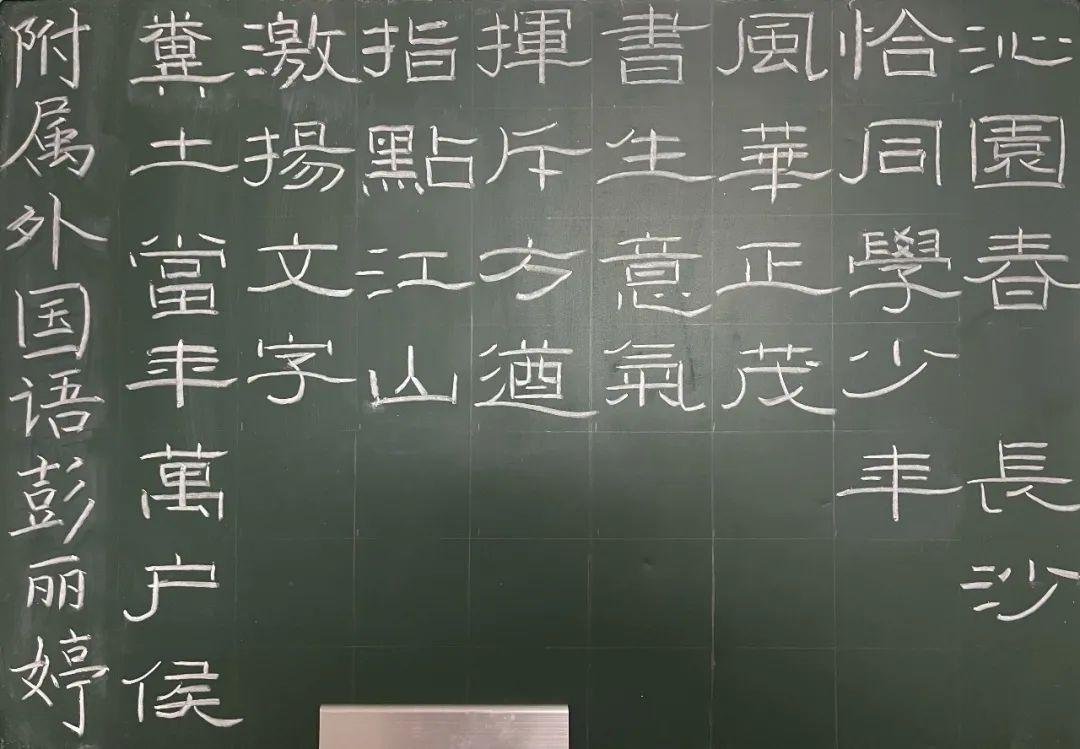 沁園春 長沙
恰同學少年
風華正茂
書生意氣
揮斥方遒
指點江山
激揚文字
糞土當年萬户侯
附属外国语彭丽婷